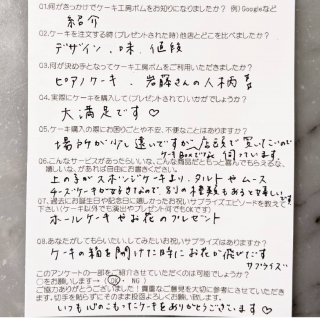 01.何がきっかけでケーキ工房ボムをお知りになりましたか？ 例)Googleなど
紹介
02.ケーキを注文する時(プレゼントされた時)他店とどこを比べましたか？
デザイン、味、値段
03.何が決め手となってケーキ工房ボムをご利用いただきましたか？
ピアノケーキ、岩藤さんの人柄
04.実際にケーキを購入して(プレゼントされて)いかがでしょうか？
大満足です♡
05.ケーキ購入時にお困りごとや不安、不便なことはありますか？
場所が少し遠いですが、店頭で買いたいので
伺っています
06.こんなサービスがあったらいいな、こんな商品だともっと喜んでもらえるな、
嬉しいな、があれば自由にお書きください。
上のチがスポンジケーキより、タルトやムース
チーズケーキが好きなので、別の種類もあると嬉しいです
07.過去にお誕生日や記念日に嬉しかったお祝いサプライズエピソードを教えて
下さい(ケーキ以外でも演出やプレゼント何でもOKです)
ホールケーキやお花のプレゼント
08.あなたがしてもらいたい、してみたいお祝いサプライズはありますか？
ケーキの箱を開けた時にお花が飛びだす
サプライズ
このアンケートの一部をご紹介させていただくのは可能でしょうか？
○をお願いします→ ( OK ・ NG )
ご協力ありがとうございました！貴重なご意見を大切に参考にさせていただき
ます。切手を貼らずにそのまま投函よろしくお願い致します。
いつも心のこもったケーキをありがとうございます♡